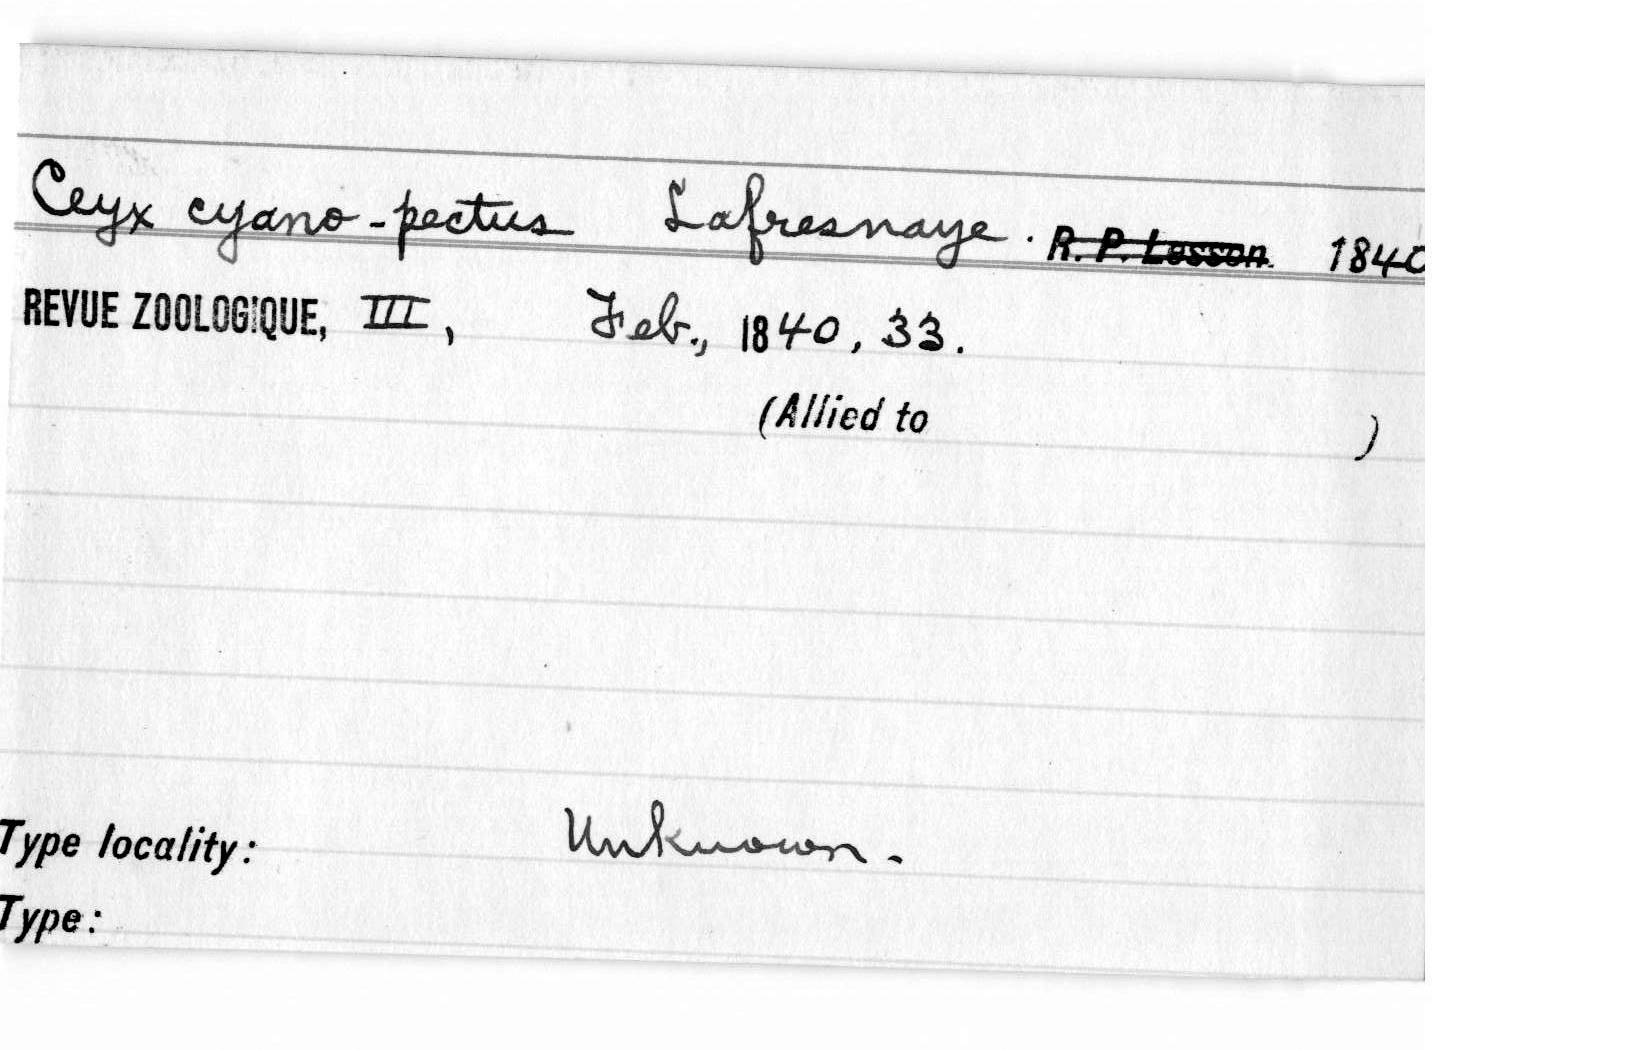 Ceyx cyano-pectus Lafresnaye. R. P. Lesson. 1840
REVUE ZOOLOGIQUE, III, Feb., 1840, 33.
(Allied to )
Type locality: Unknown.
Type: